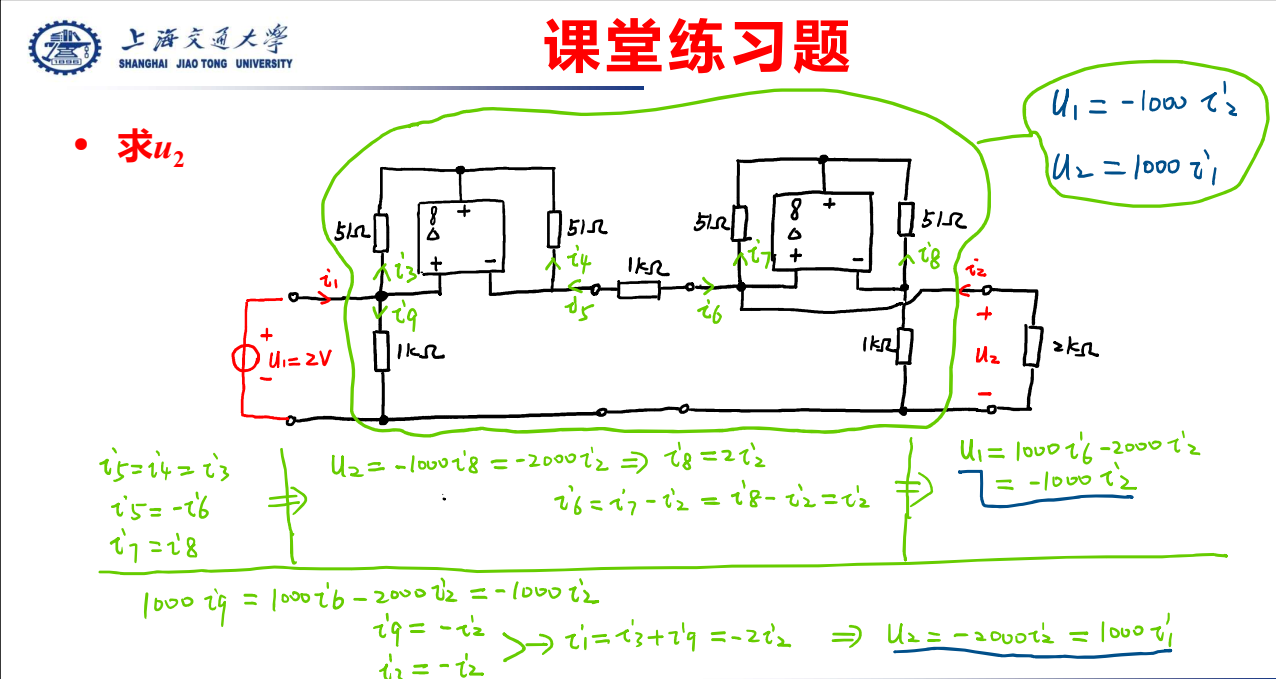 上海交通大学
SHANGHAI JIAO TONG UNIVERSITY
1896
课堂练习题
u₁ = -1000 i₂
u₂ = 1000 i₁
• 求u₂
51Ω
8
Δ
+
+
-
51Ω
51Ω
8
Δ
+
+
-
51Ω
i₃
i₄
1kΩ
i₇
i₈
i₁
i₉
i₅
i₆
i₂
+
u₁=2V
-
1kΩ
1kΩ
+
u₂
-
2kΩ
i₅=i₄=i₃
i₅=-i₆
i₇=i₈
⇒
u₂=-1000i₈=-2000i₂ ⇒ i₈=2i₂
i₆=i₇-i₂=i₈-i₂=i₂
⇒
u₁=1000i₆-2000i₂
=-1000i₂
1000i₉=1000i₆-2000i₂=-1000i₂
i₉=-i₂
i₃=-i₂
→ i₁=i₃+i₉=-2i₂ ⇒ u₂=-2000i₂=1000i₁